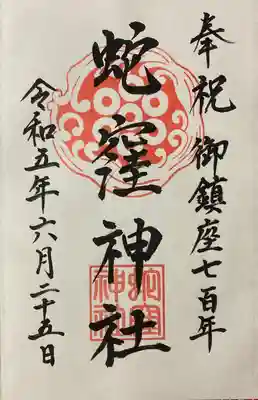 奉祝御鎮座七百年
蛇窪神社
令和五年六月二十五日
蛇窪神社